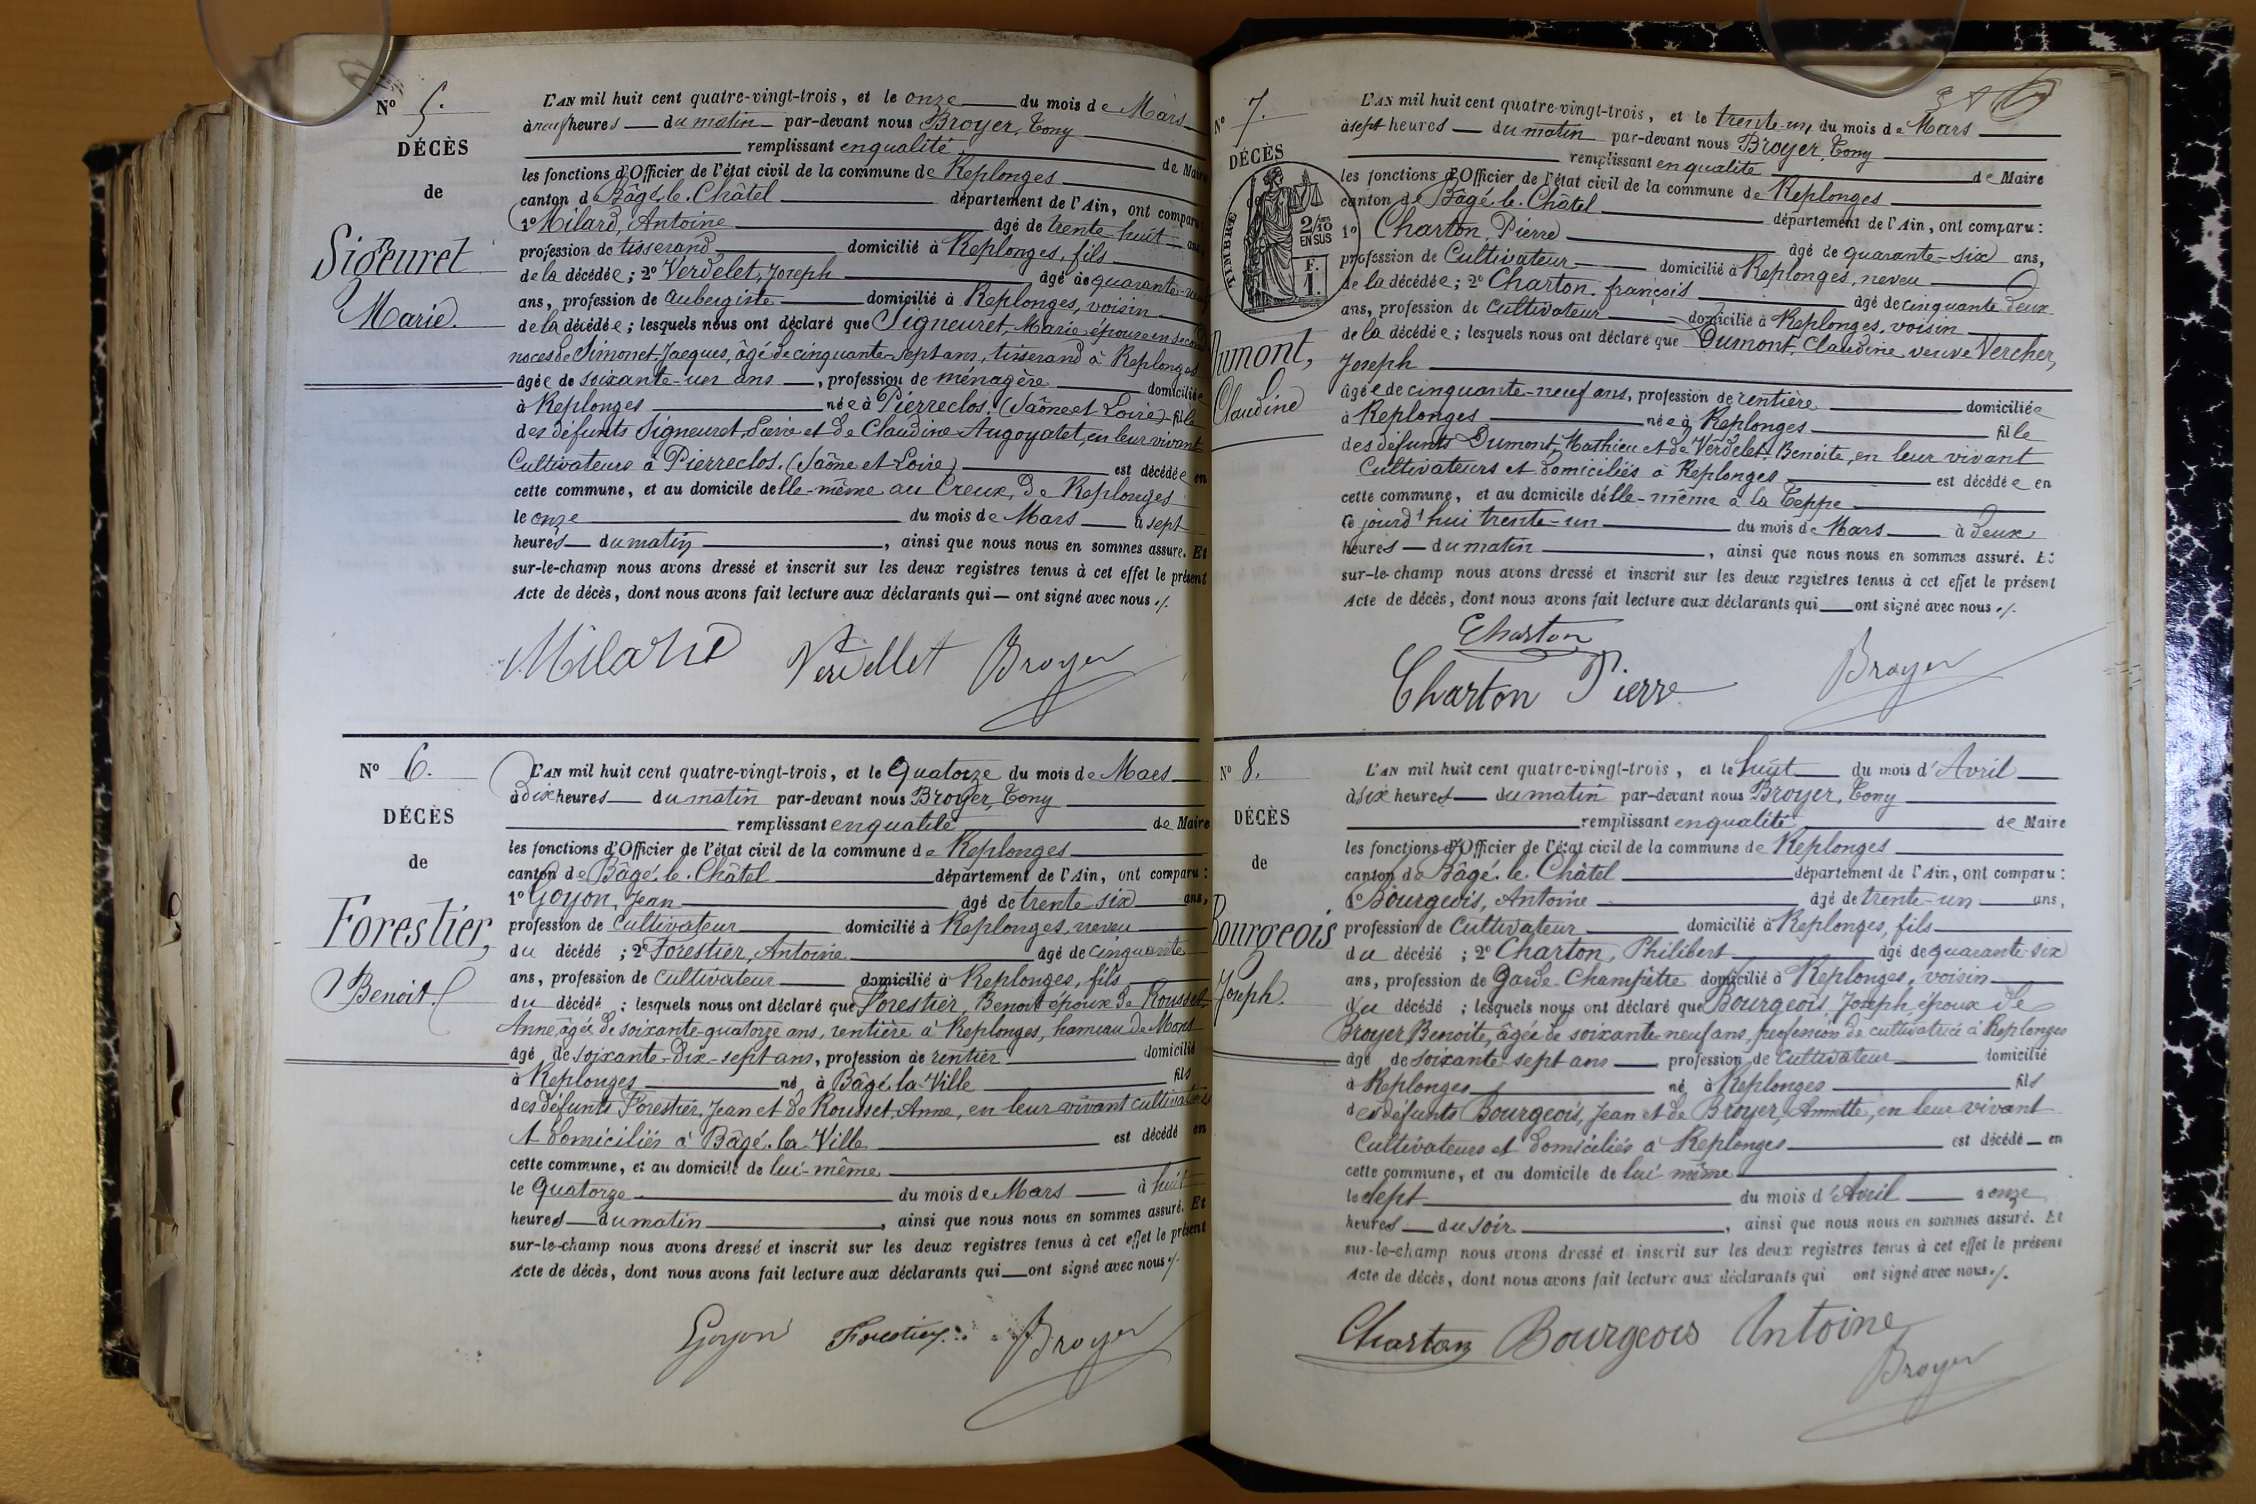 N° 5.
DÉCÈS
de
Sigeuret
Marie.
L'AN mil huit cent quatre-vingt-trois, et le onze du mois de Mars
à neuf heures du matin par-devant nous Broyer, Tony
remplissant en qualité de Maire
les fonctions d'Officier de l'état civil de la commune de Replonges
canton de Bâgé-le-Châtel département de l'Ain, ont comparu:
1° Milard, Antoine âgé de trente-huit ans,
profession de tisserand, domicilié à Replonges, fils
de la décédée; 2° Verdelet, Joseph âgé de quarante-neuf
ans, profession de aubergiste domicilié à Replonges, voisin
de la décédée; lesquels nous ont déclaré que Signeuret, Marie épouse en secondes
noces de Simonet Jacques, âgé de cinquante-sept ans, tisserand à Replonges
âgée de soixante-un ans, profession de ménagère domiciliée
à Replonges née à Pierreclos. (Saône et Loire) fille
des défunts Signeuret, Pierre et de Claudine Augoyatet, en leur vivant
Cultivateurs à Pierreclos. (Saône et Loire) est décédée en
cette commune, et au domicile delle-même au Creux, de Replonges
le onze du mois de Mars à sept
heures du matin, ainsi que nous nous en sommes assuré. Et
sur-le-champ nous avons dressé et inscrit sur les deux registres tenus à cet effet le présent
Acte de décès, dont nous avons fait lecture aux déclarants qui — ont signé avec nous ./.
Milard Verdellet Broyer
N° 6.
DÉCÈS
de
Forestier,
Benoit.
L'AN mil huit cent quatre-vingt-trois, et le Quatorze du mois de Mars
à dix heures du matin par-devant nous Broyer, Tony
remplissant en qualité de Maire
les fonctions d'Officier de l'état civil de la commune de Replonges
canton de Bâgé-le-Châtel département de l'Ain, ont comparu:
1° Goyon, Jean âgé de trente six ans,
profession de Cultivateur domicilié à Replonges, neveu
du décédé; 2° Forestier, Antoine âgé de cinquante
ans, profession de cultivateur domicilié à Replonges, fils
du décédé; lesquels nous ont déclaré que Forestier, Benoit époux de Rousset,
Anne âgée de soixante-quatorze ans, rentière à Replonges, hameau de Mons
âgé de soixante-dix-sept ans, profession de rentier domicilié
à Replonges né à Bâgé-la-Ville fils
des défunts Forestier, Jean et de Rousset, Anne, en leur vivant cultivateurs
et domiciliés à Bâgé-la-Ville est décédé en
cette commune, et au domicile de lui-même
le Quatorze du mois de Mars à huit
heures du matin, ainsi que nous nous en sommes assuré. Et
sur-le-champ nous avons dressé et inscrit sur les deux registres tenus à cet effet le présent
Acte de décès, dont nous avons fait lecture aux déclarants qui — ont signé avec nous ./.
Goyon Forestier Broyer
N° 7.
DÉCÈS
TIMBRE
2/10
EN SUS
F.
1.
Dumont,
Claudine
L'AN mil huit cent quatre-vingt-trois, et le trente-un du mois de Mars
à sept heures du matin par-devant nous Broyer, Tony
remplissant en qualité de Maire
les fonctions d'Officier de l'état civil de la commune de Replonges
canton de Bâgé-le-Châtel département de l'Ain, ont comparu:
1° Charton, Pierre âgé de quarante-six ans,
profession de Cultivateur domicilié à Replonges, neveu
de la décédée; 2° Charton françois âgé de cinquante deux
ans, profession de cultivateur domicilié à Replonges, voisin
de la décédée; lesquels nous ont déclaré que Dumont, Claudine veuve Vercher,
Joseph
âgée de cinquante-neuf ans, profession de rentière domiciliée
à Replonges née à Replonges fille
des défunts Dumont, Mathieu et de Verdelet, Benoite, en leur vivant
Cultivateurs et domiciliés à Replonges est décédée en
cette commune, et au domicile delle-même à la Teppe
Ce jourd'hui trente-un du mois de Mars à deux
heures du matin, ainsi que nous nous en sommes assuré. Et
sur-le-champ nous avons dressé et inscrit sur les deux registres tenus à cet effet le présent
Acte de décès, dont nous avons fait lecture aux déclarants qui — ont signé avec nous ./.
Charton
Charton Pierre Broyer
N° 8.
DÉCÈS
de
Bourgeois
Joseph.
L'AN mil huit cent quatre-vingt-trois, et le huit du mois d'Avril
à six heures du matin par-devant nous Broyer, Tony
remplissant en qualité de Maire
les fonctions d'Officier de l'état civil de la commune de Replonges
canton de Bâgé-le-Châtel département de l'Ain, ont comparu:
1° Bourgeois, Antoine âgé de trente-un ans,
profession de Cultivateur domicilié à Replonges, fils
du décédé; 2° Charton, Philibert âgé de quarante-six
ans, profession de Garde-Champêtre domicilié à Replonges, voisin
du décédé; lesquels nous ont déclaré que Bourgeois, Joseph, époux de
Broyer, Benoite, âgée de soixante-neuf ans, profession de cultivatrice à Replonges
âgé de soixante-sept ans profession de Cultivateur domicilié
à Replonges né à Replonges fils
des défunts Bourgeois, Jean et de Broyer, Annette, en leur vivant
Cultivateurs et domiciliés à Replonges est décédé en
cette commune, et au domicile de lui-même
le sept du mois d'Avril à onze
heures du soir, ainsi que nous nous en sommes assuré. Et
sur-le-champ nous avons dressé et inscrit sur les deux registres tenus à cet effet le présent
Acte de décès, dont nous avons fait lecture aux déclarants qui ont signé avec nous ./.
Charton Bourgeois Antoine
Broyer